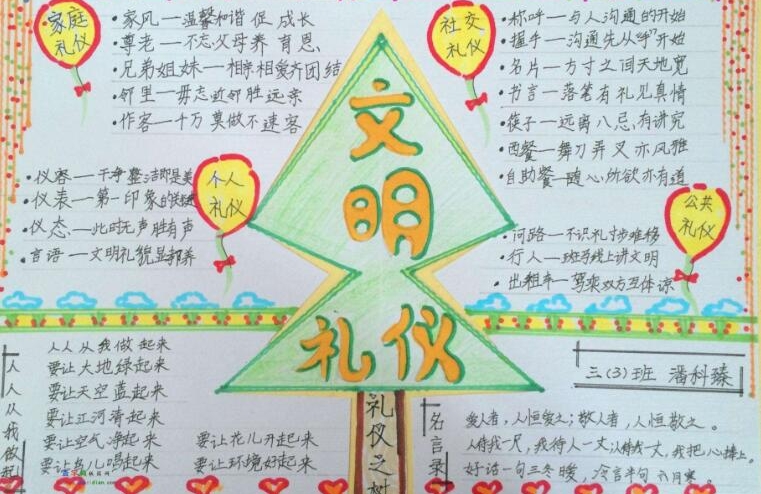 家庭
礼仪
·家风—温馨和谐促成长
·尊老—不忘父母养育恩
·兄弟姐妹—相亲相爱齐团结
·邻里—毋忘近邻胜远亲
·作客—千万莫做不速客
社交
礼仪
·称呼—与人沟通的开始
·握手—沟通先从"呼"开始
·名片—方寸之间天地宽
·书言—落笔有礼见真情
·筷子—远离八忌,有讲究
·西餐—舞刀弄叉亦风雅
·自助餐—随心所欲亦有道
个人
礼仪
·仪容—干净整洁即是美
·仪表—第一印象的关键
·仪态—此时无声胜有声
·言语—文明礼貌显邦养
公共
礼仪
·问路—不识礼寸步难移
·行人—班马线上讲文明
·出租车—驾乘双方互体谅
文明
礼仪
礼仪之树
人人从我做起
人人从我做起来
要让大地绿起来
要让天空蓝起来
要让江河清起来
要让空气净起来
要让鸟儿唱起来
要让花儿开起来
要让环境好起来
三(3)班 潘科臻
名言录
爱人者,人恒爱之;敬人者,人恒敬之。
人待我一尺,我待人一丈;人待我一丈,我把心捧上。
好话一句三冬暖,冷言半句六月寒。